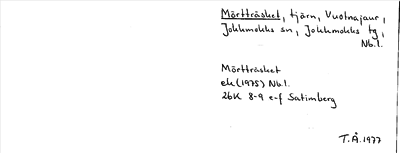 Mörtträsket, tjärn, Vuotnajaur,
Jokkmokks sn, Jokkmokks tg,
Nb.l.
Mörtträsket
ek (1975) Nb.l.
26K 8-9 e-f Satimberg
T.Å. 1977